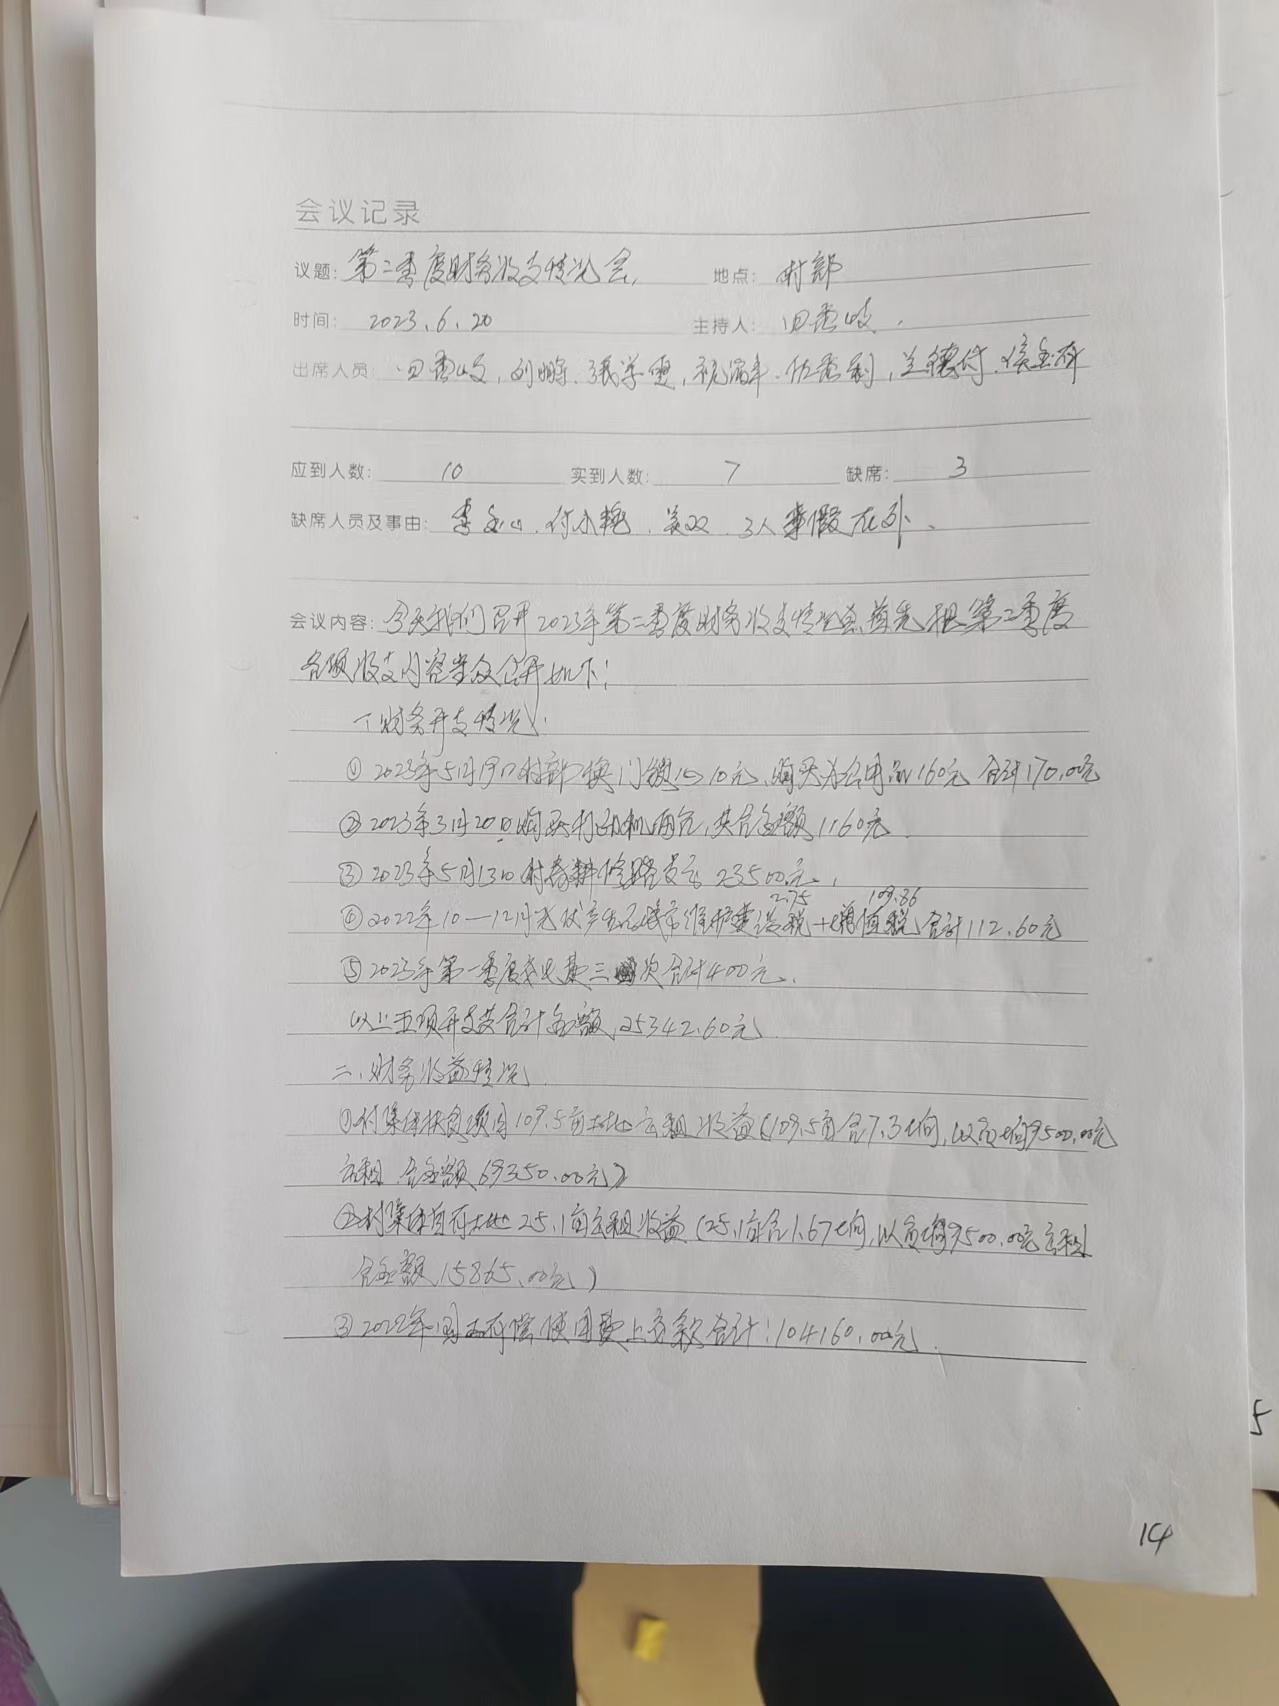 会议记录
议题: 第二季度财务收支情况会, 地点: 村部
时间: 2023.6.20 主持人: 田秀岐.
出席人员: 田秀岐, 刘 张学 德付
应到人数: 10 实到人数: 7 缺席: 3
缺席人员及事由: 李 付 3人事假在外.
会议内容: 今天我们召开2023年第二季度财务收支情况会,首先把第二季度
各项收支内容 公开如下:
一财务开支情况:
① 2023年5月19日村部换门锁 10元、购买办公用品160元 合计170.00元
② 2023年3月20日购买打 机两台, 共合金额1160元.
③ 2023年5月13日村春耕修路支出 23500元.
2.75 109.86
④ 2022年10—12月光伏产生 维护建设税+增值税 合计112.60元
⑤ 2023年第一季度 电费三 次合计400元.
以上五项开支共合计金额, 25342.60元
二、财务收益情况.
① 村集体扶贫项目109.5亩土地出租收益(109.5亩合7.3垧, 以每垧9500.00元
出租 合金额69350.00元)
② 村集体自有土地25.1亩出租收益 (25.1亩合1.67垧, 以每垧9500.00元出租
合金额15865.00元)
③ 2022年 有偿使用费上交款合计: 104160.00元.
14
5